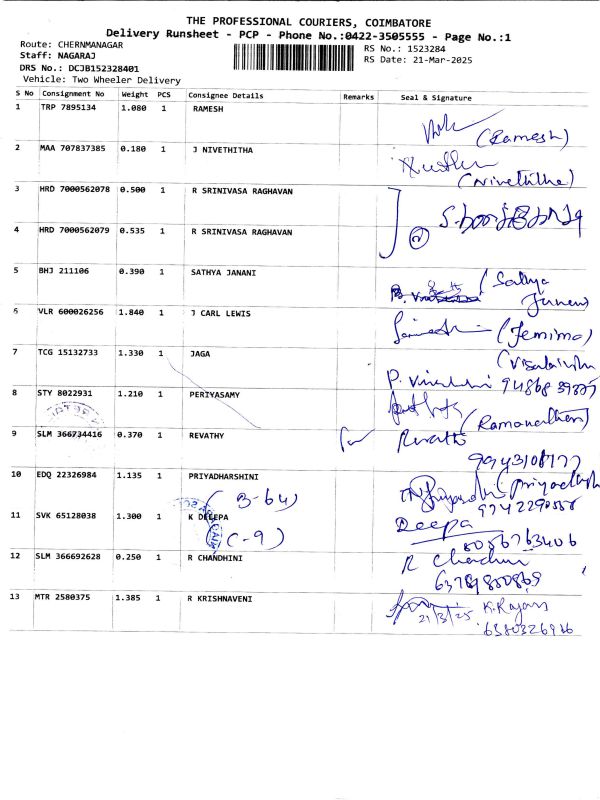 THE PROFESSIONAL COURIERS, COIMBATORE
Delivery Runsheet - PCP - Phone No.:0422-3505555 - Page No.:1
Route: CHERNMANAGAR
RS No.: 1523284
Staff: NAGARAJ
RS Date: 21-Mar-2025
DRS No.: DCJB152328401
Vehicle: Two Wheeler Delivery
S No Consignment No Weight PCS Consignee Details Remarks Seal & Signature
1 TRP 7895134 1.080 1 RAMESH
(Ramesh)
2 MAA 707837385 0.180 1 J NIVETHITHA
(Nivethitha)
3 HRD 7000562078 0.500 1 R SRINIVASA RAGHAVAN
4 HRD 7000562079 0.535 1 R SRINIVASA RAGHAVAN
5 BHJ 211106 0.390 1 SATHYA JANANI
(Sathya
6 VLR 600026256 1.840 1 J CARL LEWIS
(Jemima)
7 TCG 15132733 1.330 1 JAGA
8 STY 8022931 1.210 1 PERIYASAMY
(Ramanathan)
9 SLM 366734416 0.370 1 REVATHY
for Revathi
10 EDQ 22326984 1.135 1 PRIYADHARSHINI
(B-64)
11 SVK 65128038 1.300 1 K DEEPA
Deepa
(C-9)
8086763406
12 SLM 366692628 0.250 1 R CHANDHINI
13 MTR 2580375 1.385 1 R KRISHNAVENI
21/3/25